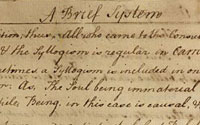 A Brief System
thus, All who came to the
& the Syllogism is regular in
a Syllogism is included in
or. As. The Soul being immaterial
Being, in this case is causal, &